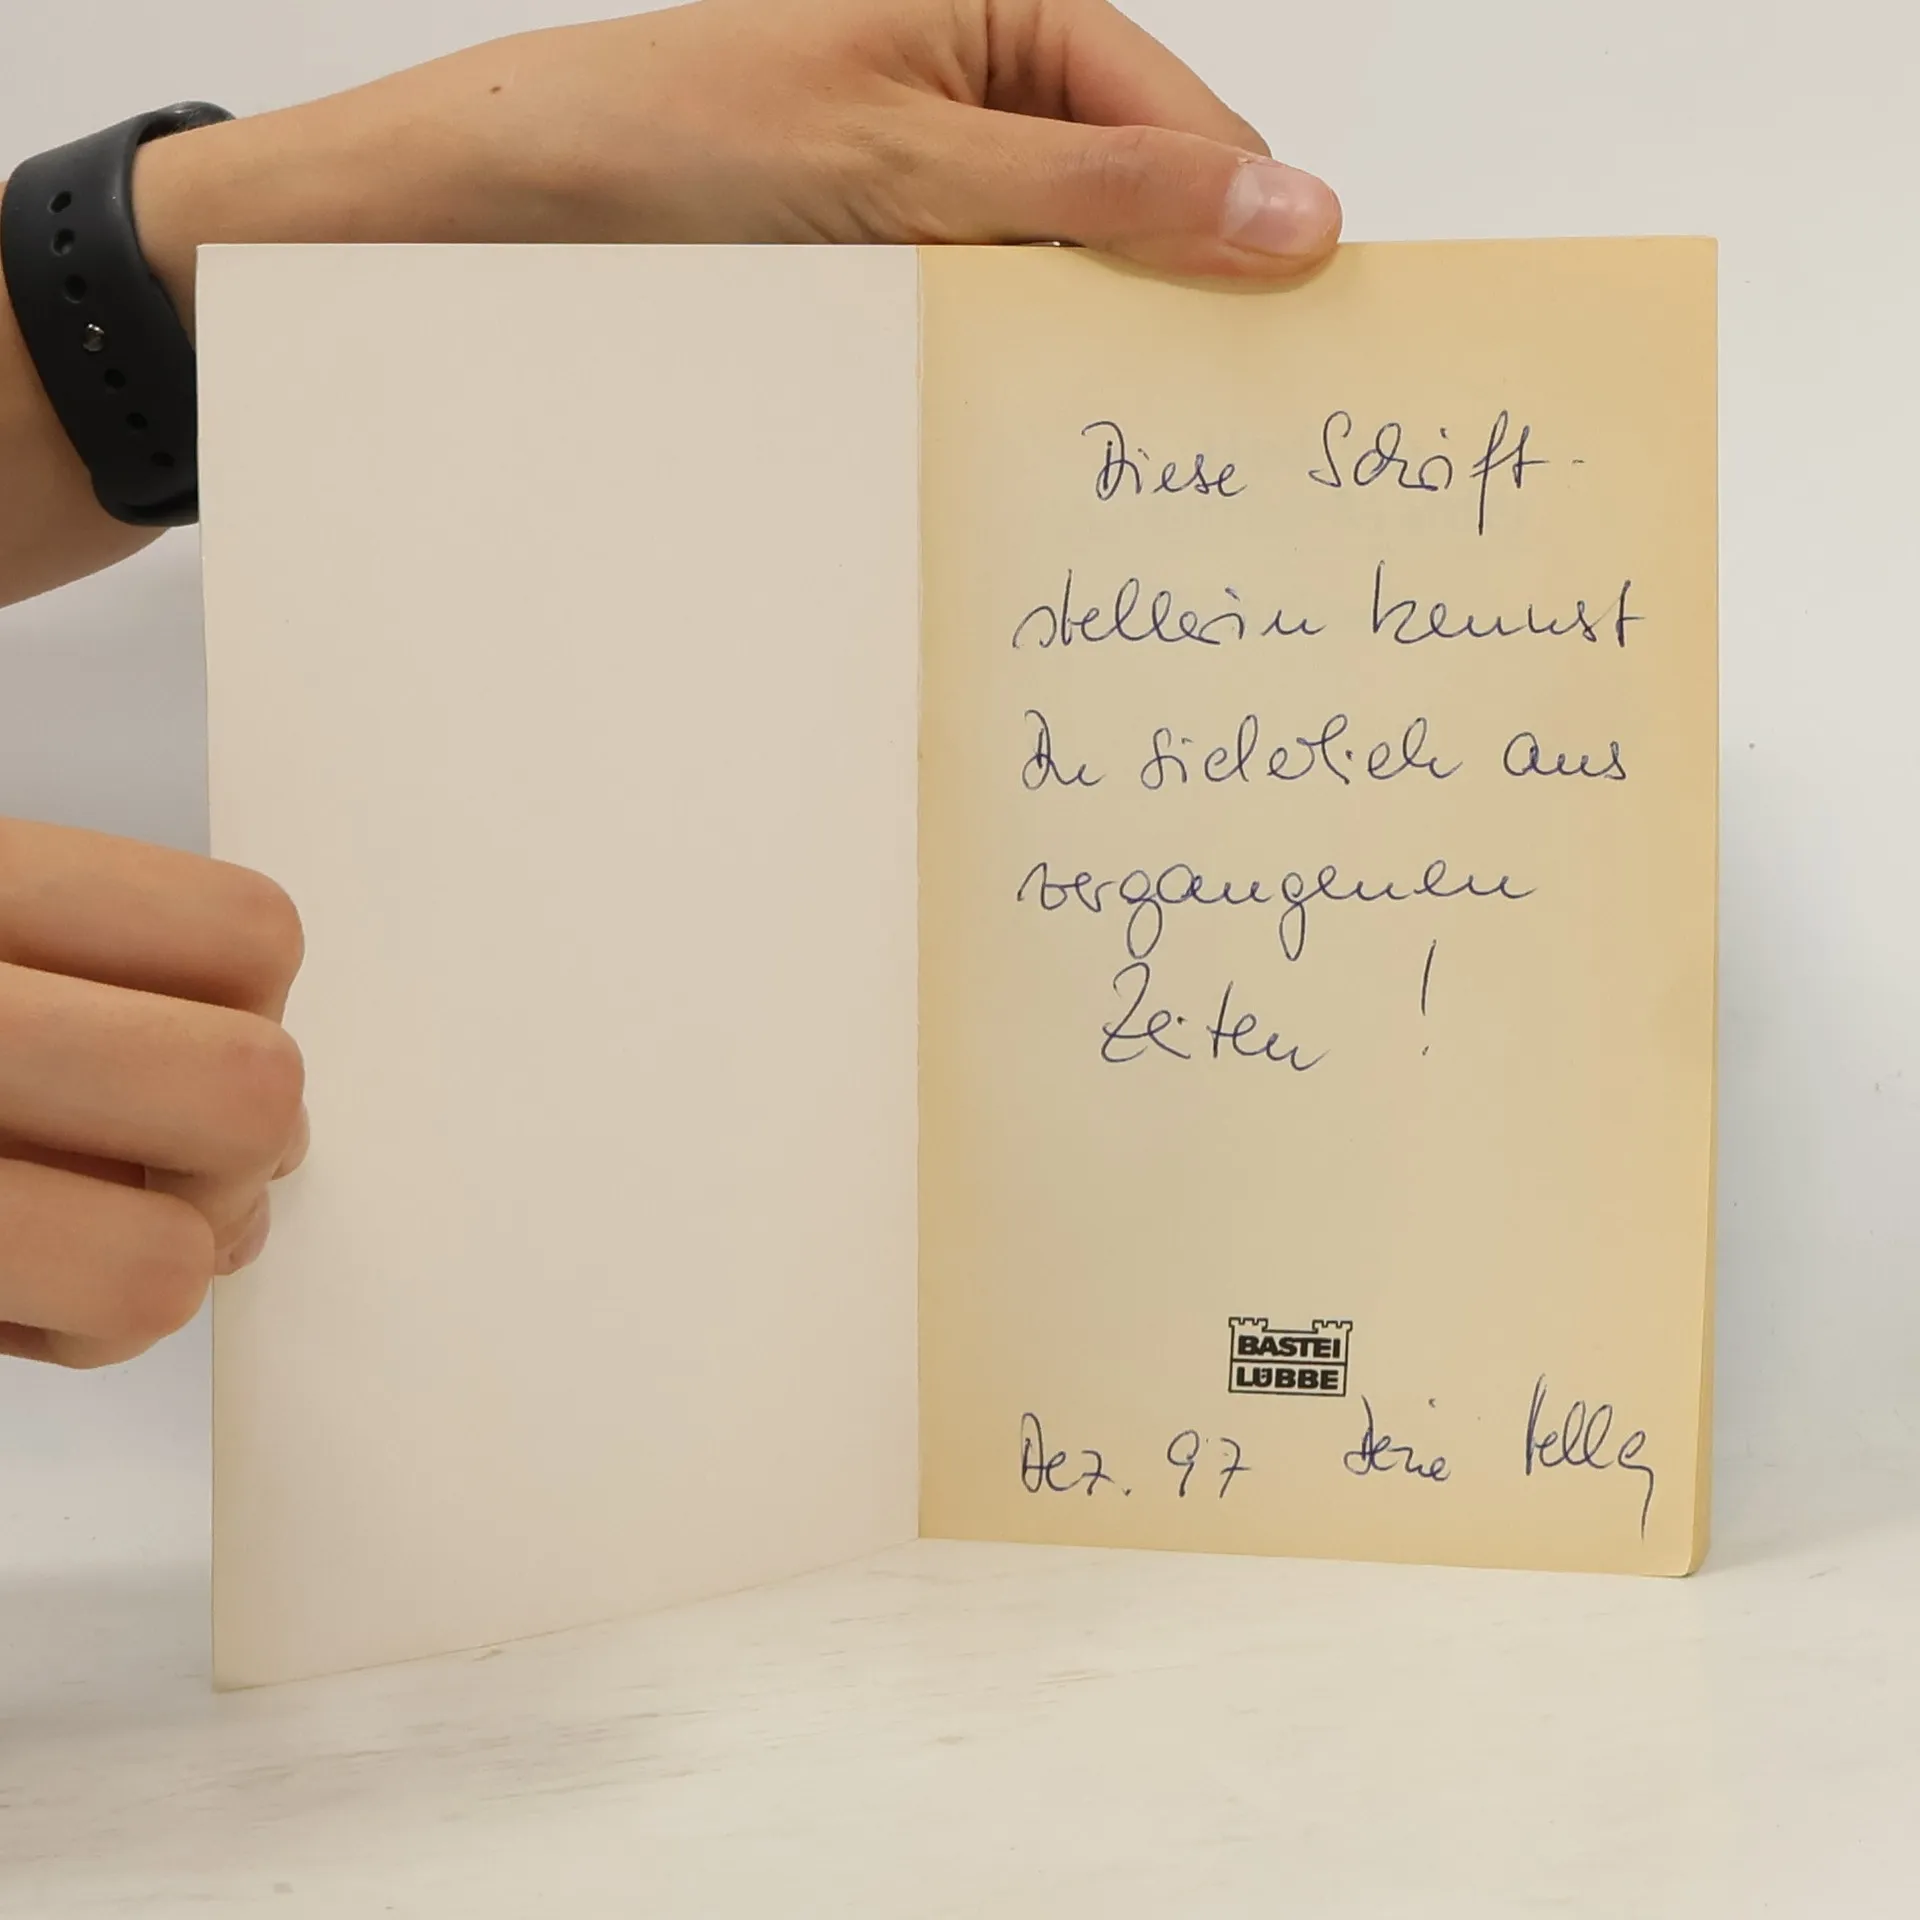 Diese Schrift-
stellerin kennst
Du sicherlich aus
vergangenen
Zeiten !
BASTEI
LÜBBE
Dez. 97 Deine